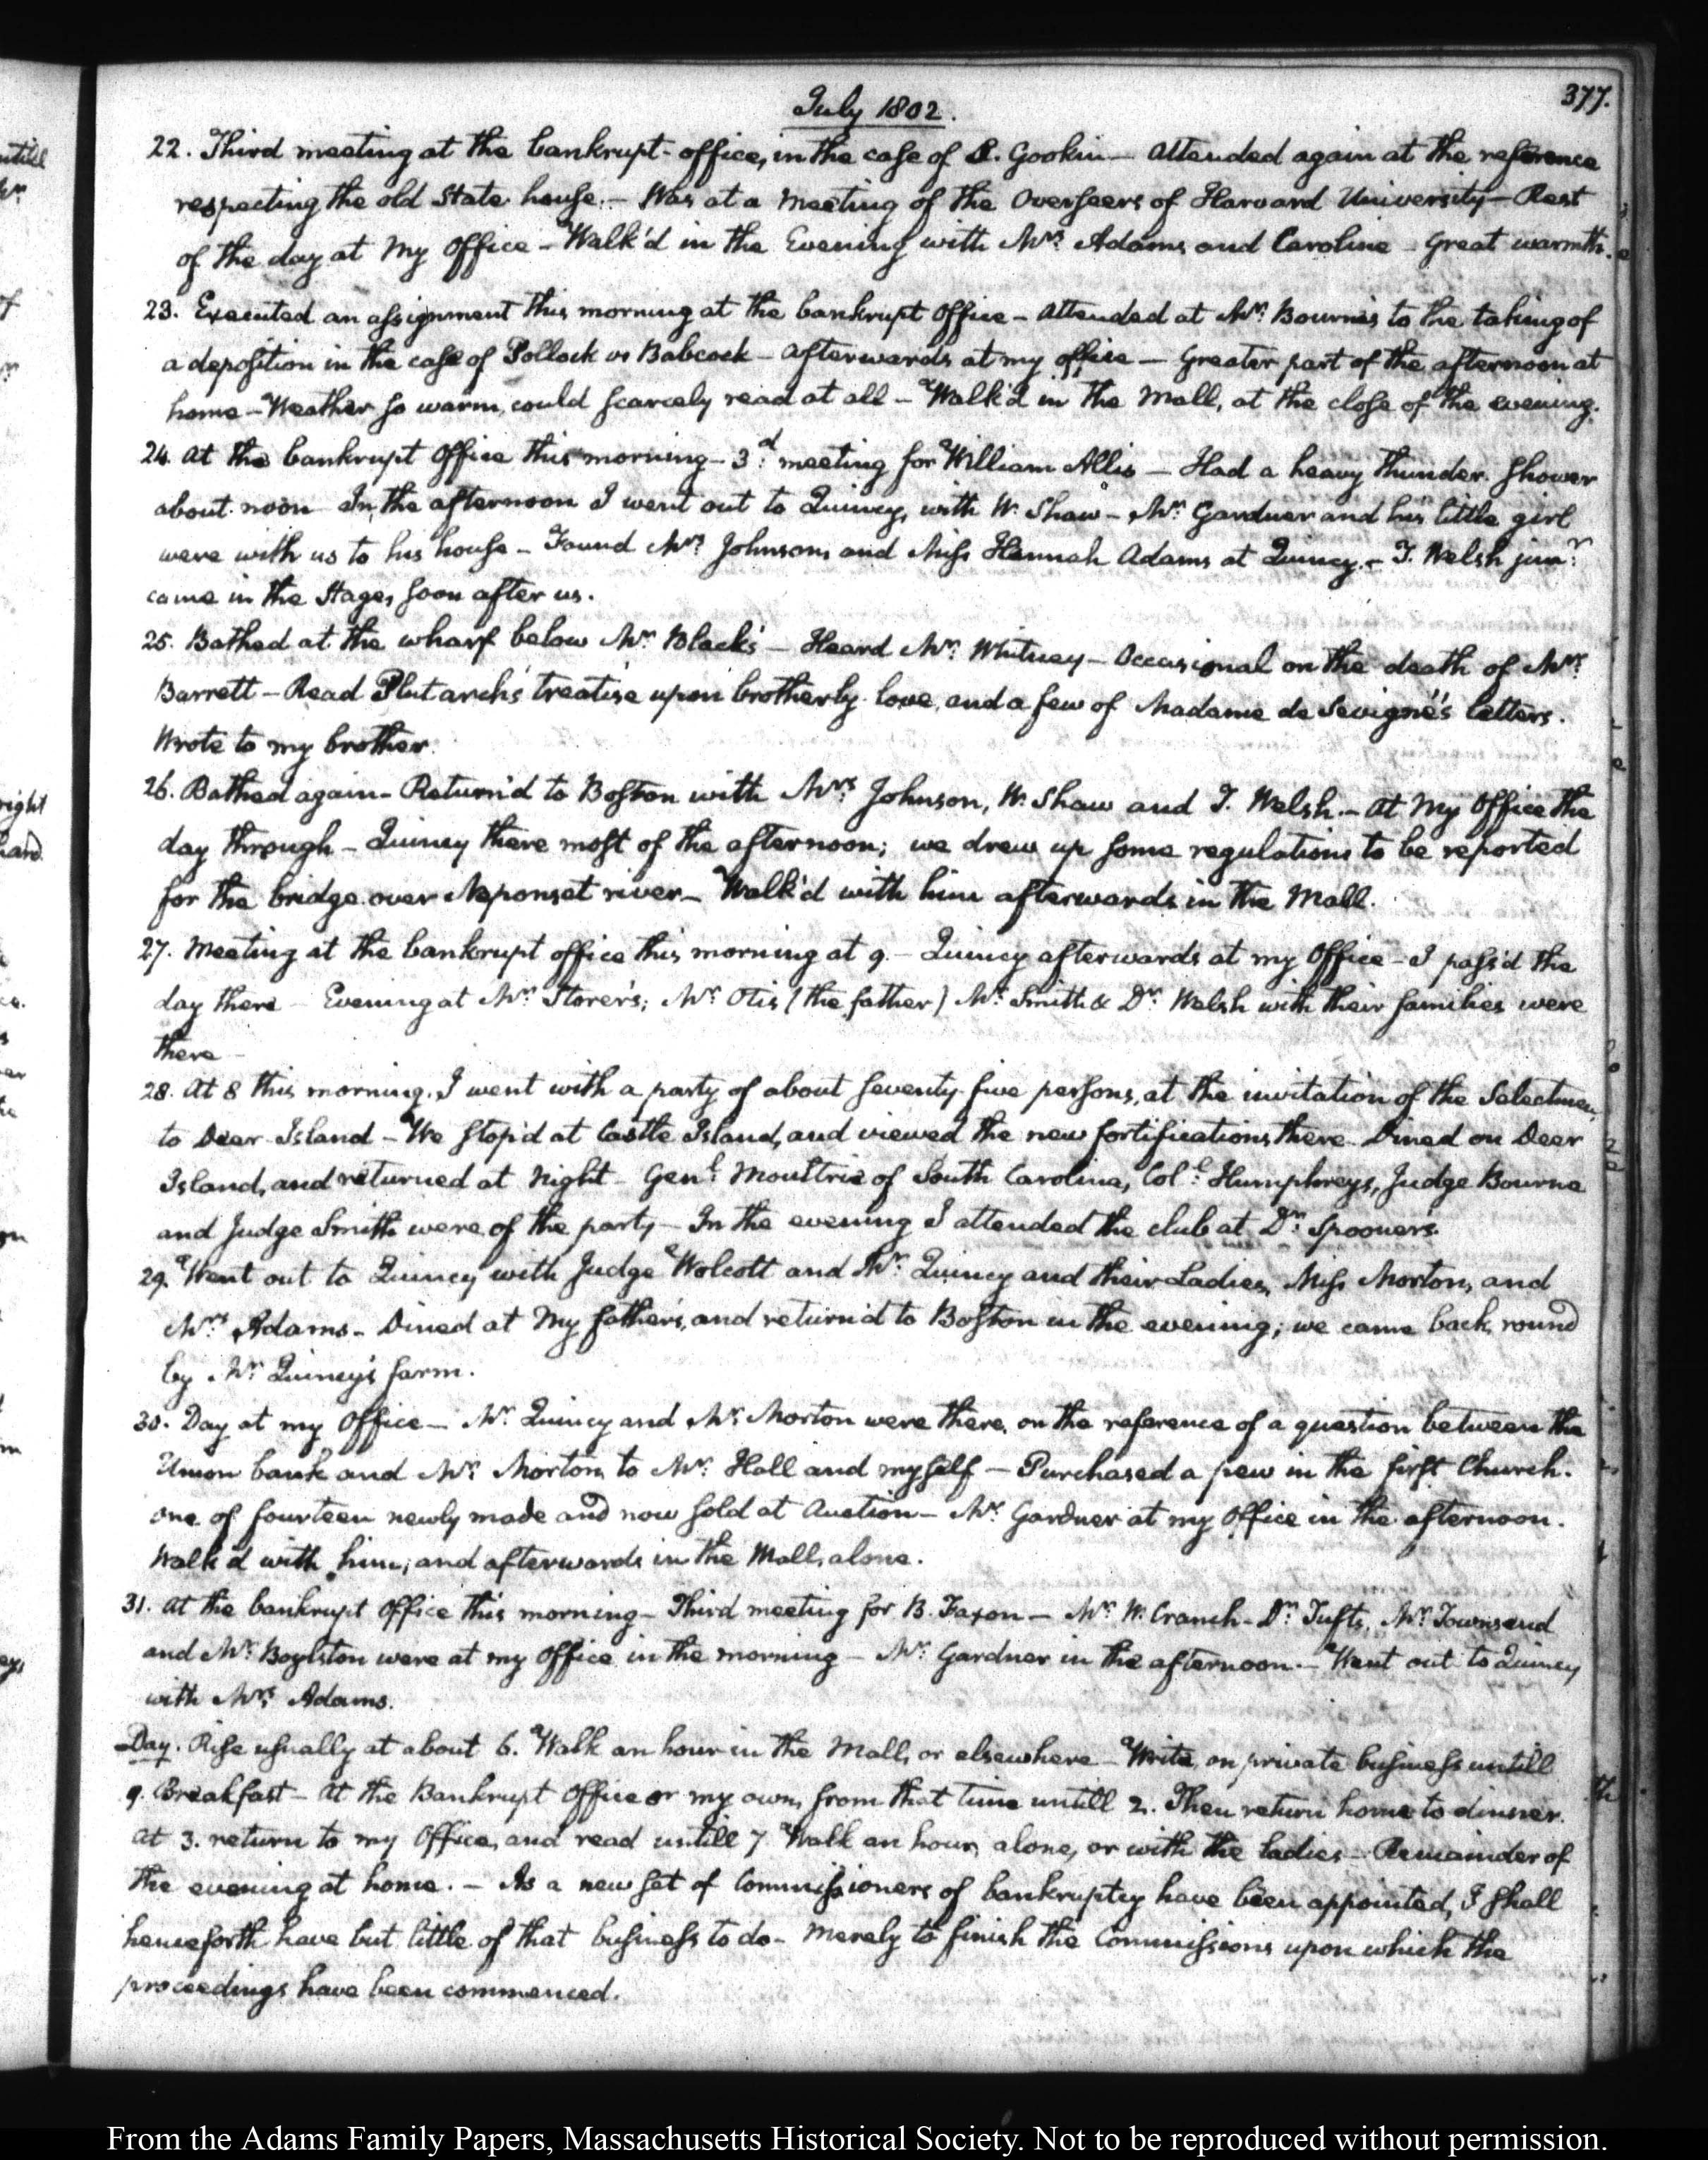 377.
July 1802.
22. Third meeting at the bankrupt-office, in the case of S. Gookin — Attended again at the reference
respecting the old State house. — Was at a meeting of the Overseers of Harvard University — Rest
of the day at my Office — Walk'd in the Evening with Mrs. Adams and Caroline — Great warmth.
23. Executed an assignment this morning at the bankrupt Office — Attended at Mr. Bourne's to the taking of
a deposition in the case of Pollock vs Babcock — Afterwards at my office — Greater part of the afternoon at
home — Weather so warm, could scarcely read at all — Walk'd in the Mall, at the close of the evening.
24. At the bankrupt Office this morning — 3d. meeting for William Allis — Had a heavy thunder shower
about noon — In the afternoon I went out to Quincy, with W. Shaw — Mr. Gardner and his little girl
were with us to his house — Found Mrs. Johnson and Miss Hannah Adams at Quincy. — T. Welsh junr.
came in the Stage, soon after us.
25. Bathed at the wharf below Mr. Black's — Heard Mr. Whitney — Occasional on the death of Mrs.
Barrett — Read Plutarch's treatise upon brotherly love, and a few of Madame de Sevigné's letters.
Wrote to my brother.
26. Bathed again — Return'd to Boston with Mrs. Johnson, W. Shaw and T. Welsh. — At my Office the
day through — Quincy there most of the afternoon; we drew up some regulations to be reported
for the bridge over Neponset river — Walk'd with him afterwards in the Mall.
27. Meeting at the bankrupt office this morning at 9. — Quincy afterwards at my Office — I pass'd the
day there — Evening at Mr. Storer's; Mr. Otis (the father) Mr. Smith & Dr. Welsh with their families were
there —
28. At 8 this morning, I went with a party of about seventy five persons, at the invitation of the Selectmen,
to Deer Island — We stop'd at Castle Island, and viewed the new fortifications there. Dined on Deer
Island, and returned at night — Genl. Moultrie of South Carolina, Coll. Humphreys, Judge Bourne
and Judge Smith were of the party — In the evening I attended the club at Dr. Spooner's.
29. Went out to Quincy with Judge Wolcott and Mr. Quincy and their Ladies, Miss Morton, and
Mrs. Adams — Dined at my father's, and return'd to Boston in the evening; we came back round
by Mr. Quincy's farm.
30. Day at my Office — Mr. Quincy and Mr. Morton were there, on the reference of a question between the
Union bank and Mr. Morton, to Mr. Hall and myself — Purchased a pew in the first Church.
one of fourteen newly made and now sold at Auction — Mr. Gardner at my Office in the afternoon.
Walk'd with him, and afterwards in the Mall, alone.
31. At the bankrupt Office this morning — Third meeting for B. Faxon — Mr. W. Cranch — Dr. Tufts, Mr. Townsend
and Mr. Boylston were at my Office in the morning — Mr. Gardner in the afternoon. — Went out to Quincy
with Mrs. Adams.
Day. Rise usually at about 6. Walk an hour in the Mall, or elsewhere — Write, on private business untill
9. Breakfast — At the Bankrupt Office or my own, from that time untill 2. Then return home to dinner.
At 3. return to my Office, and read untill 7 Walk an hour, alone, or with the ladies — Remainder of
the evening at home. — As a new set of Commissioners of bankruptcy have been appointed, I shall
henceforth have but little of that business to do — Merely to finish the Commissions upon which the
proceedings have been commenced.
From the Adams Family Papers, Massachusetts Historical Society. Not to be reproduced without permission.